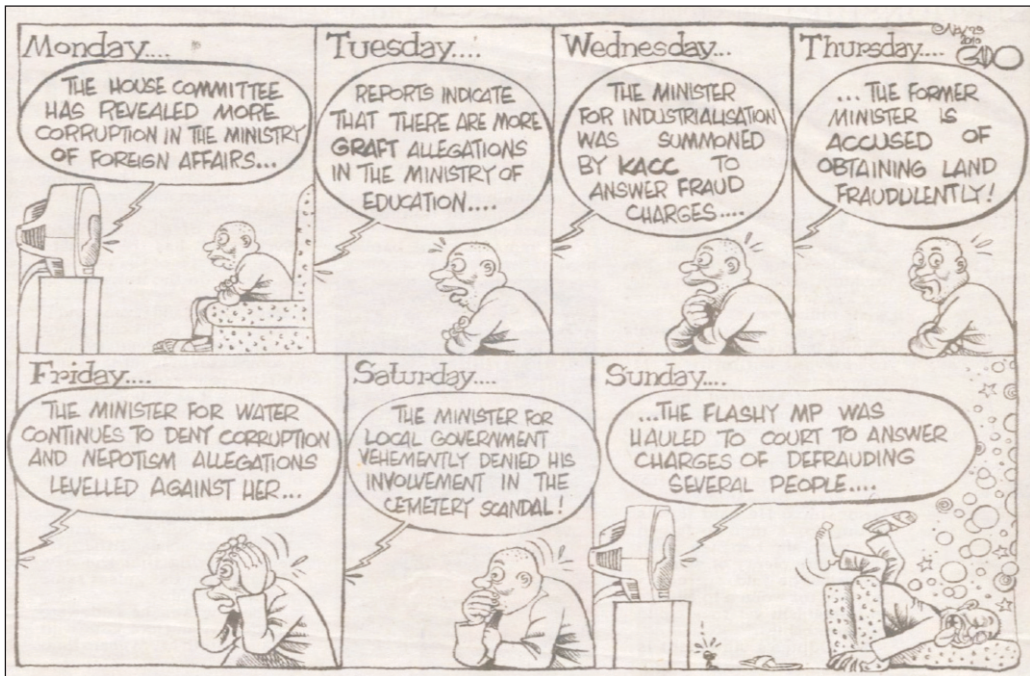 Monday....
THE HOUSE COMMITTEE
HAS REVEALED MORE
CORRUPTION IN THE MINISTRY
OF FOREIGN AFFAIRS...
Tuesday....
REPORTS INDICATE
THAT THERE ARE MORE
GRAFT ALLEGATIONS
IN THE MINISTRY OF
EDUCATION....
Wednesday...
THE MINISTER
FOR INDUSTRIALISATION
WAS SUMMONED
BY KACC TO
ANSWER FRAUD
CHARGES....
Thursday....
GADO
... THE FORMER
MINISTER IS
ACCUSED OF
OBTAINING LAND
FRAUDULENTLY!
Friday....
THE MINISTER FOR WATER
CONTINUES TO DENY CORRUPTION
AND NEPOTISM ALLEGATIONS
LEVELLED AGAINST HER...
Saturday....
THE MINISTER FOR
LOCAL GOVERNMENT
VEHEMENTLY DENIED HIS
INVOLVEMENT IN THE
CEMETERY SCANDAL!
Sunday....
...THE FLASHY MP WAS
HAULED TO COURT TO ANSWER
CHARGES OF DEFRAUDING
SEVERAL PEOPLE....